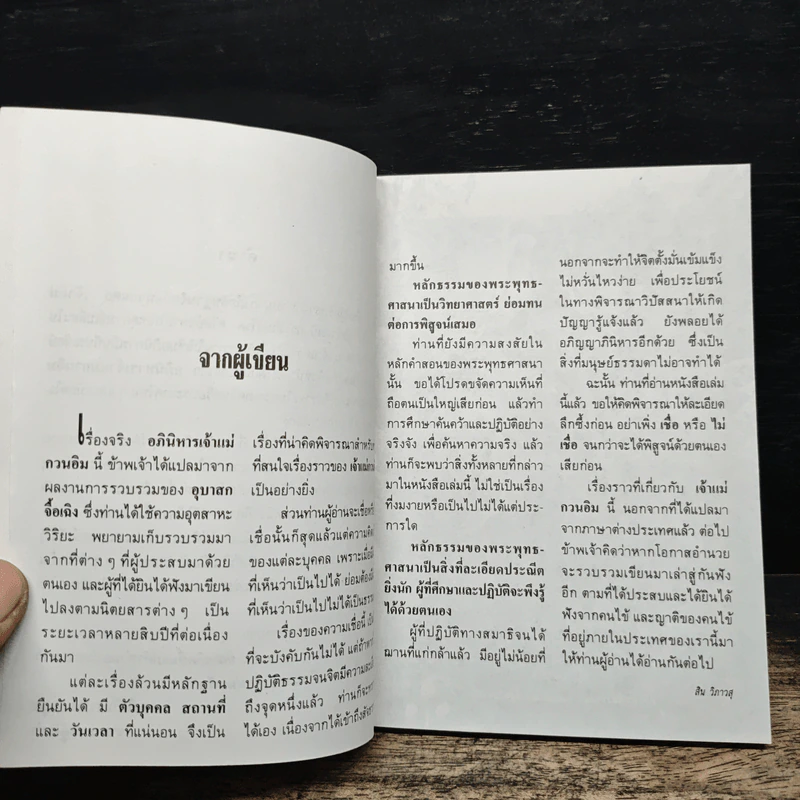 จากผู้เขียน
เรื่องจริง อภินิหารเจ้าแม่
กวนอิม นี้ ข้าพเจ้าได้แปลมาจาก
ผลงานการรวบรวมของ อุบาสก
จื้อเฉิง ซึ่งท่านได้ใช้ความอุตสาหะ
วิริยะ พยายามเก็บรวบรวมมา
จากที่ต่าง ๆ ที่ผู้ประสบมาด้วย
ตนเอง และผู้ที่ได้ยินได้ฟังมาเขียน
ไปลงตามนิตยสารต่าง ๆ เป็น
ระยะเวลาหลายสิบปีที่ต่อเนื่อง
กันมา
แต่ละเรื่องล้วนมีหลักฐาน
ยืนยันได้ มี ตัวบุคคล สถานที่
และ วันเวลา ที่แน่นอน จึงเป็น
เรื่องที่น่าคิดพิจารณาสำหรับ
ที่สนใจเรื่องราวของ เจ้าแม่
เป็นอย่างยิ่ง
ส่วนท่านผู้อ่านจะเชื่อ
เชื่อนั้นก็สุดแล้วแต่ความคิด
ของแต่ละบุคคล เพราะเมื่อ
ที่เห็นว่าเป็นไปได้ ย่อมต้อง
ที่เห็นว่าเป็นไปไม่ได้เป็น
เรื่องของความเชื่อนี้
ที่จะบังคับกันไม่ได้ แต่ถ้า
ปฏิบัติธรรมจนจิตมีความ
ถึงจุดหนึ่งแล้ว ท่านก็จะ
ได้เอง เนื่องจากได้เข้าถึง
มากขึ้น
หลักธรรมของพระพุทธ-
ศาสนาเป็นวิทยาศาสตร์ ย่อมทน
ต่อการพิสูจน์เสมอ
ท่านที่ยังมีความสงสัยใน
หลักคำสอนของพระพุทธศาสนา
นั้น ขอได้โปรดขจัดความเห็นที่
ถือตนเป็นใหญ่เสียก่อน แล้วทำ
การศึกษาค้นคว้าและปฏิบัติอย่าง
จริงจัง เพื่อค้นหาความจริง แล้ว
ท่านก็จะพบว่าสิ่งทั้งหลายที่กล่าว
มาในหนังสือเล่มนี้ ไม่ใช่เป็นเรื่อง
ที่งมงายหรือเป็นไปไม่ได้แต่ประ-
การใด
หลักธรรมของพระพุทธ-
ศาสนาเป็นสิ่งที่ละเอียดประณีต
ยิ่งนัก ผู้ที่ศึกษาและปฏิบัติจะพึงรู้
ได้ด้วยตนเอง
ผู้ที่ปฏิบัติทางสมาธิจนได้
ฌานที่แก่กล้าแล้ว มีอยู่ไม่น้อยที่
นอกจากจะทำให้จิตตั้งมั่นเข้มแข็ง
ไม่หวั่นไหวง่าย เพื่อประโยชน์
ในทางพิจารณาวิปัสสนาให้เกิด
ปัญญารู้แจ้งแล้ว ยังพลอยได้
อภิญญาภินิหารอีกด้วย ซึ่งเป็น
สิ่งที่มนุษย์ธรรมดาไม่อาจทำได้
ฉะนั้น ท่านที่อ่านหนังสือเล่ม
นี้แล้ว ขอให้คิดพิจารณาให้ละเอียด
ลึกซึ้งก่อน อย่าเพิ่ง เชื่อ หรือ ไม่
เชื่อ จนกว่าจะได้พิสูจน์ด้วยตนเอง
เสียก่อน
เรื่องราวที่เกี่ยวกับ เจ้าแม่
กวนอิม นี้ นอกจากที่ได้แปลมา
จากภาษาต่างประเทศแล้ว ต่อไป
ข้าพเจ้าคิดว่าหากโอกาสอำนวย
จะรวบรวมเขียนมาเล่าสู่กันฟัง
อีก ตามที่ได้ประสบและได้ยินได้
ฟังจากคนไข้ และญาติของคนไข้
ที่อยู่ภายในประเทศของเรานี้มา
ให้ท่านผู้อ่านได้อ่านกันต่อไป
สิน วิภาวสุ